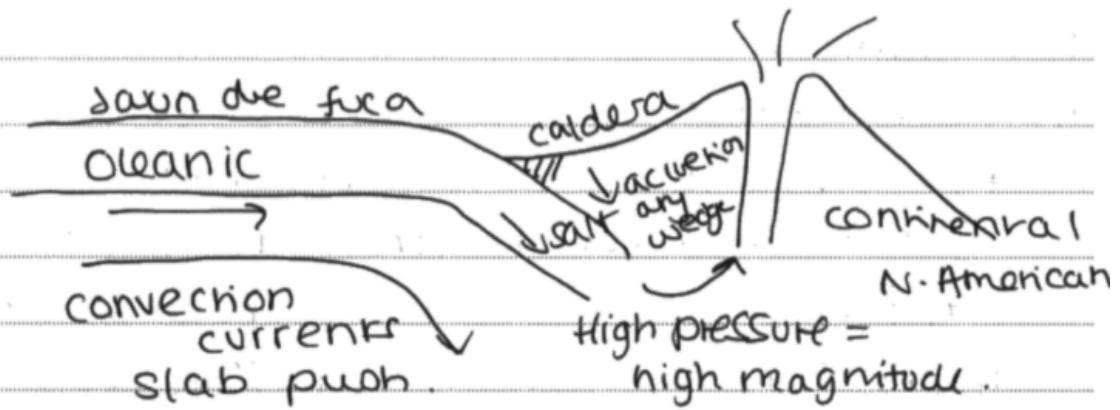 Jaun die fuca
caldera
Oceanic
accretion
ary
wedge
salt
continental
N. American
convection
currents
slab push.
High pressure =
high magnitude.